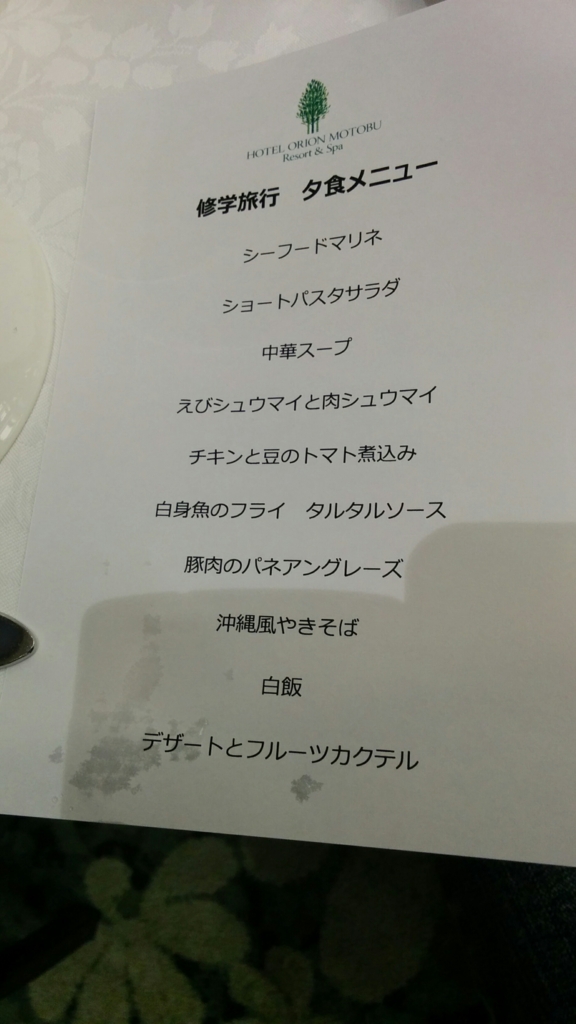 HOTEL ORION MOTOBU
Resort & Spa
修学旅行　夕食メニュー
シーフードマリネ
ショートパスタサラダ
中華スープ
えびシュウマイと肉シュウマイ
チキンと豆のトマト煮込み
白身魚のフライ　タルタルソース
豚肉のパネアングレーズ
沖縄風やきそば
白飯
デザートとフルーツカクテル